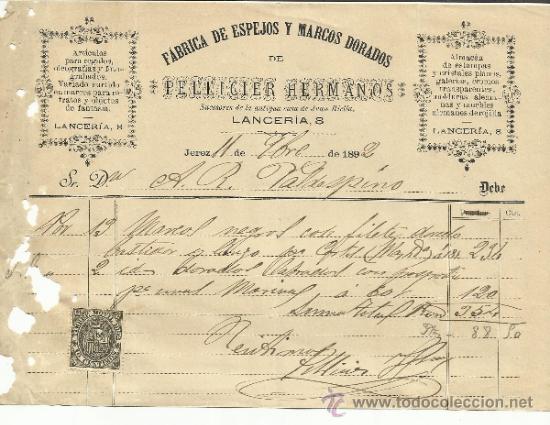 FÁBRICA DE ESPEJOS Y MARCOS DORADOS
DE
PELLICIER HERMANOS
Sucesores de la antigua casa de Juan
LANCERÍA, 8
Artículos
para regalos,
oleografías y
grabados.
Variado surtido
en marcos para re-
tratos y objetos
de fantasía.
LANCERÍA, 8
Almacén
de estampas
y cristales planos,
grabados,
transparentes,
molduras,
nas y muebles
alemanes de rejilla
LANCERÍA, 8.
Jerez 11 de 7bre de 1892
Sr. Dn A. R. Valdespino Debe
Por 13 Marcos negros con filete
236
2 id dorados con
a 60 120
Suma Total Rvn 354
Pts 88 50
Recibimos
Pellicier
www.todocoleccion.net